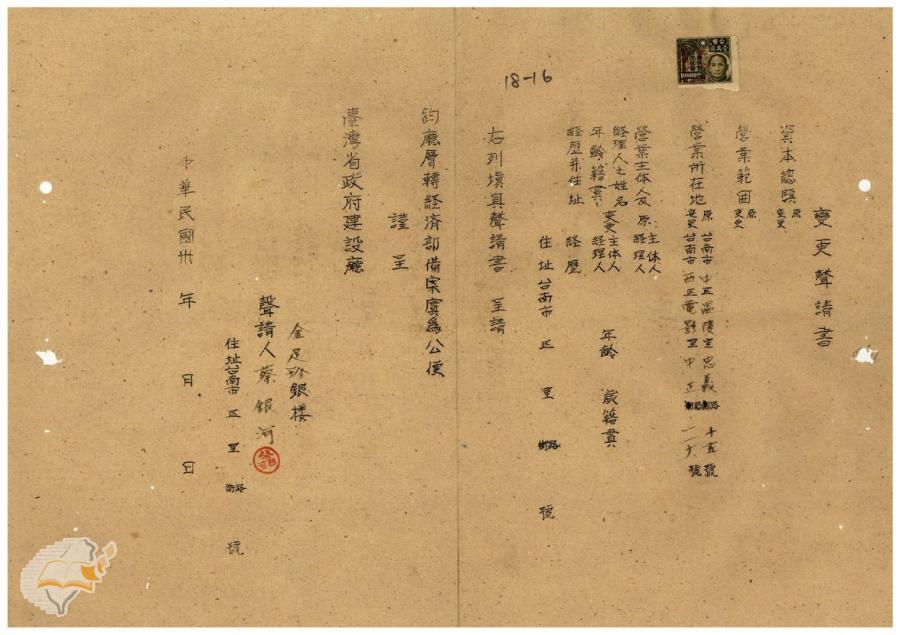 18-16
變更聲請書
資本總額 原 變更
營業範圍 原 變更
營業所在地 原 台南市 中正區 忠義 街路 十五號
變更 台南市 西區 電影里 中正 街路 一一六號
營業主体人及經理人之姓名 原 主体人 經理人
變更 主体人 經理人
年齡籍貫 年齡 歲籍貫
経歷并住址 経歷
住址台南市 区 里 街路 號
右列填具聲請書 呈請
鈞廳層轉経済部備案實爲公便
謹呈
臺灣省政府建設廳
金足珍銀楼
聲請人蔡銀河
住址台南市 区 里 街路 號
中華民國卅 年 月 日
10000